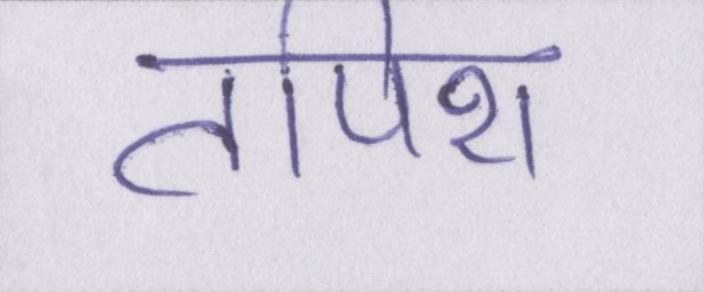 तपिश